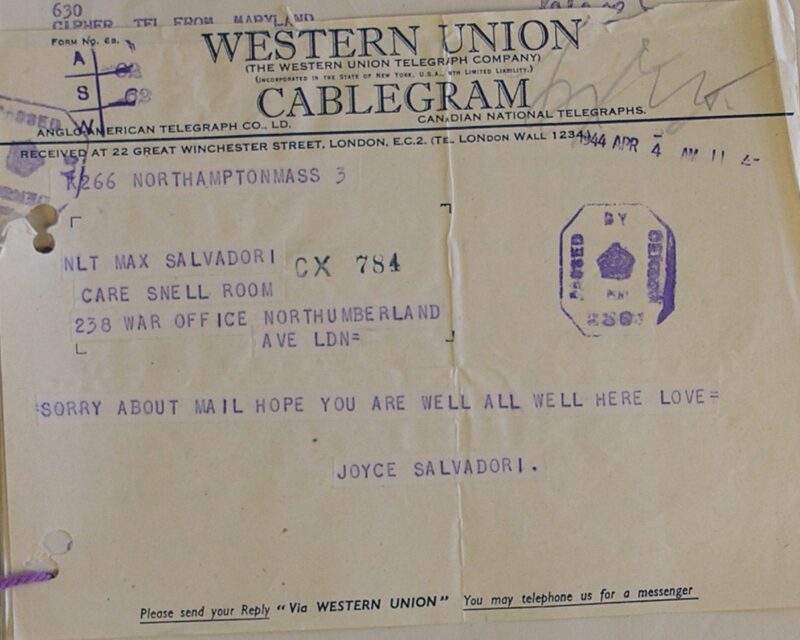 630
CIPHER TEL FROM MARYLAND
FORM NO. 6B.
WESTERN UNION
(THE WESTERN UNION TELEGRAPH COMPANY)
(INCORPORATED IN THE STATE OF NEW YORK, U.S.A., WITH LIMITED LIABILITY.)
CABLEGRAM
A
S
W
62
62
ANGLO-AMERICAN TELEGRAPH CO., LD.
CANADIAN NATIONAL TELEGRAPHS.
RECEIVED AT 22 GREAT WINCHESTER STREET, LONDON, E.C.2. (TEL. LONDON WALL 1234.)
1944 APR 4 AM 11
PASSED
266 NORTHAMPTONMASS 3
NLT MAX SALVADORI
CX 784
CARE SNELL ROOM
238 WAR OFFICE NORTHUMBERLAND
AVE LDN=
PASSED BY CENSOR
=SORRY ABOUT MAIL HOPE YOU ARE WELL ALL WELL HERE LOVE=
JOYCE SALVADORI.
Please send your Reply "Via WESTERN UNION" You may telephone us for a messenger